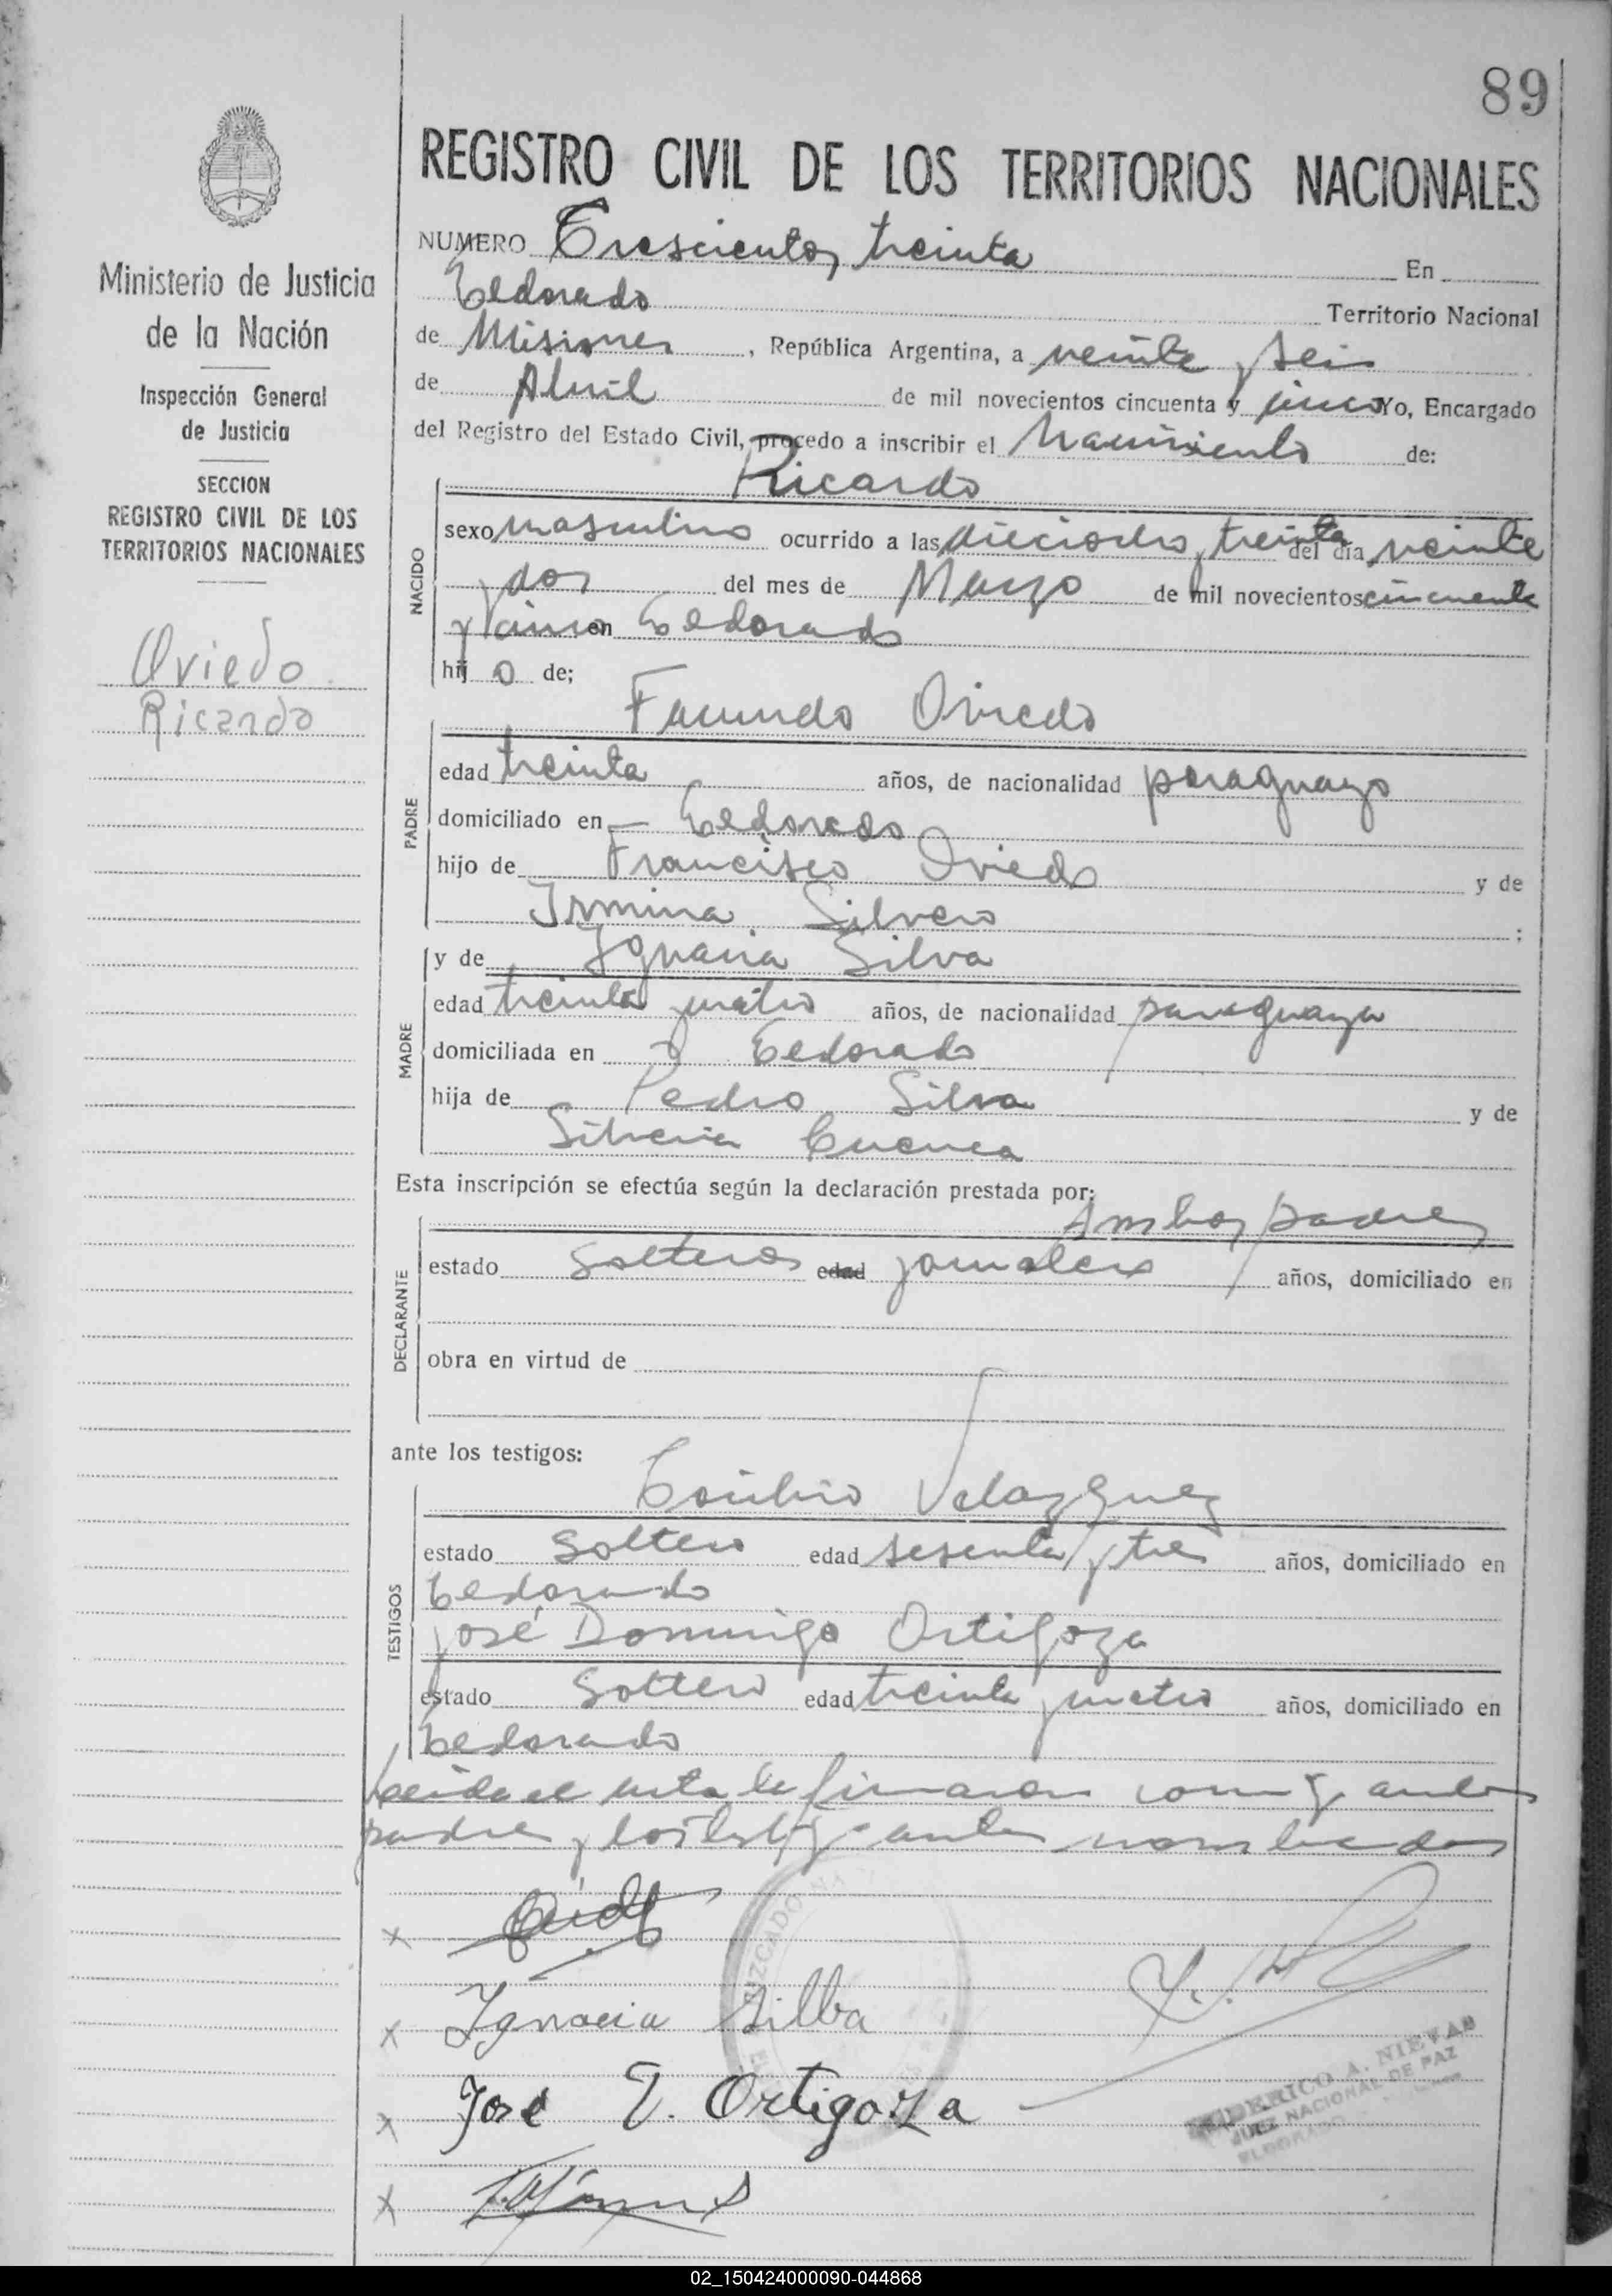 89
REGISTRO CIVIL DE LOS TERRITORIOS NACIONALES
Ministerio de Justicia
de la Nación
Inspección General
de Justicia
SECCION
REGISTRO CIVIL DE LOS
TERRITORIOS NACIONALES
Oviedo
Ricardo
NUMERO Trescientos treinta En
Eldorado Territorio Nacional
de Misiones, República Argentina, a veinte y seis
de Abril de mil novecientos cincuenta y cinco Yo, Encargado
del Registro del Estado Civil, procedo a inscribir el Nacimiento de:
NACIDO
Ricardo
sexo masculino ocurrido a las dieciocho y treinta del día veinte
y dos del mes de Marzo de mil novecientos cincuenta
y cinco en Eldorado
hij o de;
PADRE
Facundo Oviedo
edad treinta años, de nacionalidad paraguayo
domiciliado en Eldorado
hijo de Francisco Oviedo y de
Irmina Silvero ;
MADRE
y de Ignacia Silva
edad treinta y cuatro años, de nacionalidad paraguaya
domiciliada en Eldorado
hija de Pedro Silva y de
Silveria Cuenca
Esta inscripción se efectúa según la declaración prestada por:
DECLARANTE
Ambos padres
estado solteros edad jornalero años, domiciliado en
obra en virtud de
ante los testigos:
TESTIGOS
Toribio Velazquez
estado soltero edad sesenta y tres años, domiciliado en
Eldorado
José Domingo Ortigoza
estado soltero edad treinta y cuatro años, domiciliado en
Eldorado
Leida el acta la firmaron conmigo ambos
padres y los testigos antes nombrados
x
x Ignacia Silba
x José D. Ortigoza
x
JUZGADO NA
FEDERICO A. NIEVAS
JUEZ NACIONAL DE PAZ
ELDORADO
02_150424000090-044868